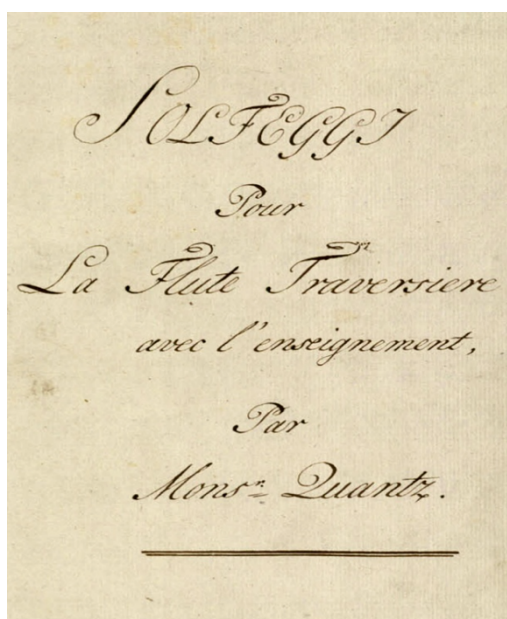 SOLFEGGI
Pour
La Flute Traversiere
avec l'enseignement,
Par
Monsr. Quantz.